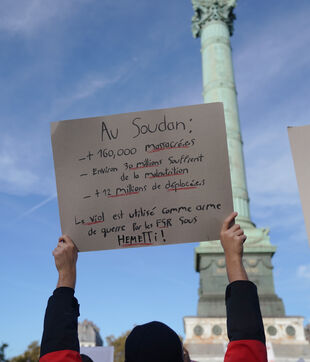 Au Soudan:
- + 160,000 massacré.es
- Environ 30 millions souffrent
de la malnutrition
- + 12 millions de déplacé.es
Le viol est utilisé comme arme
de guerre par les FSR sous
HEMETTI!